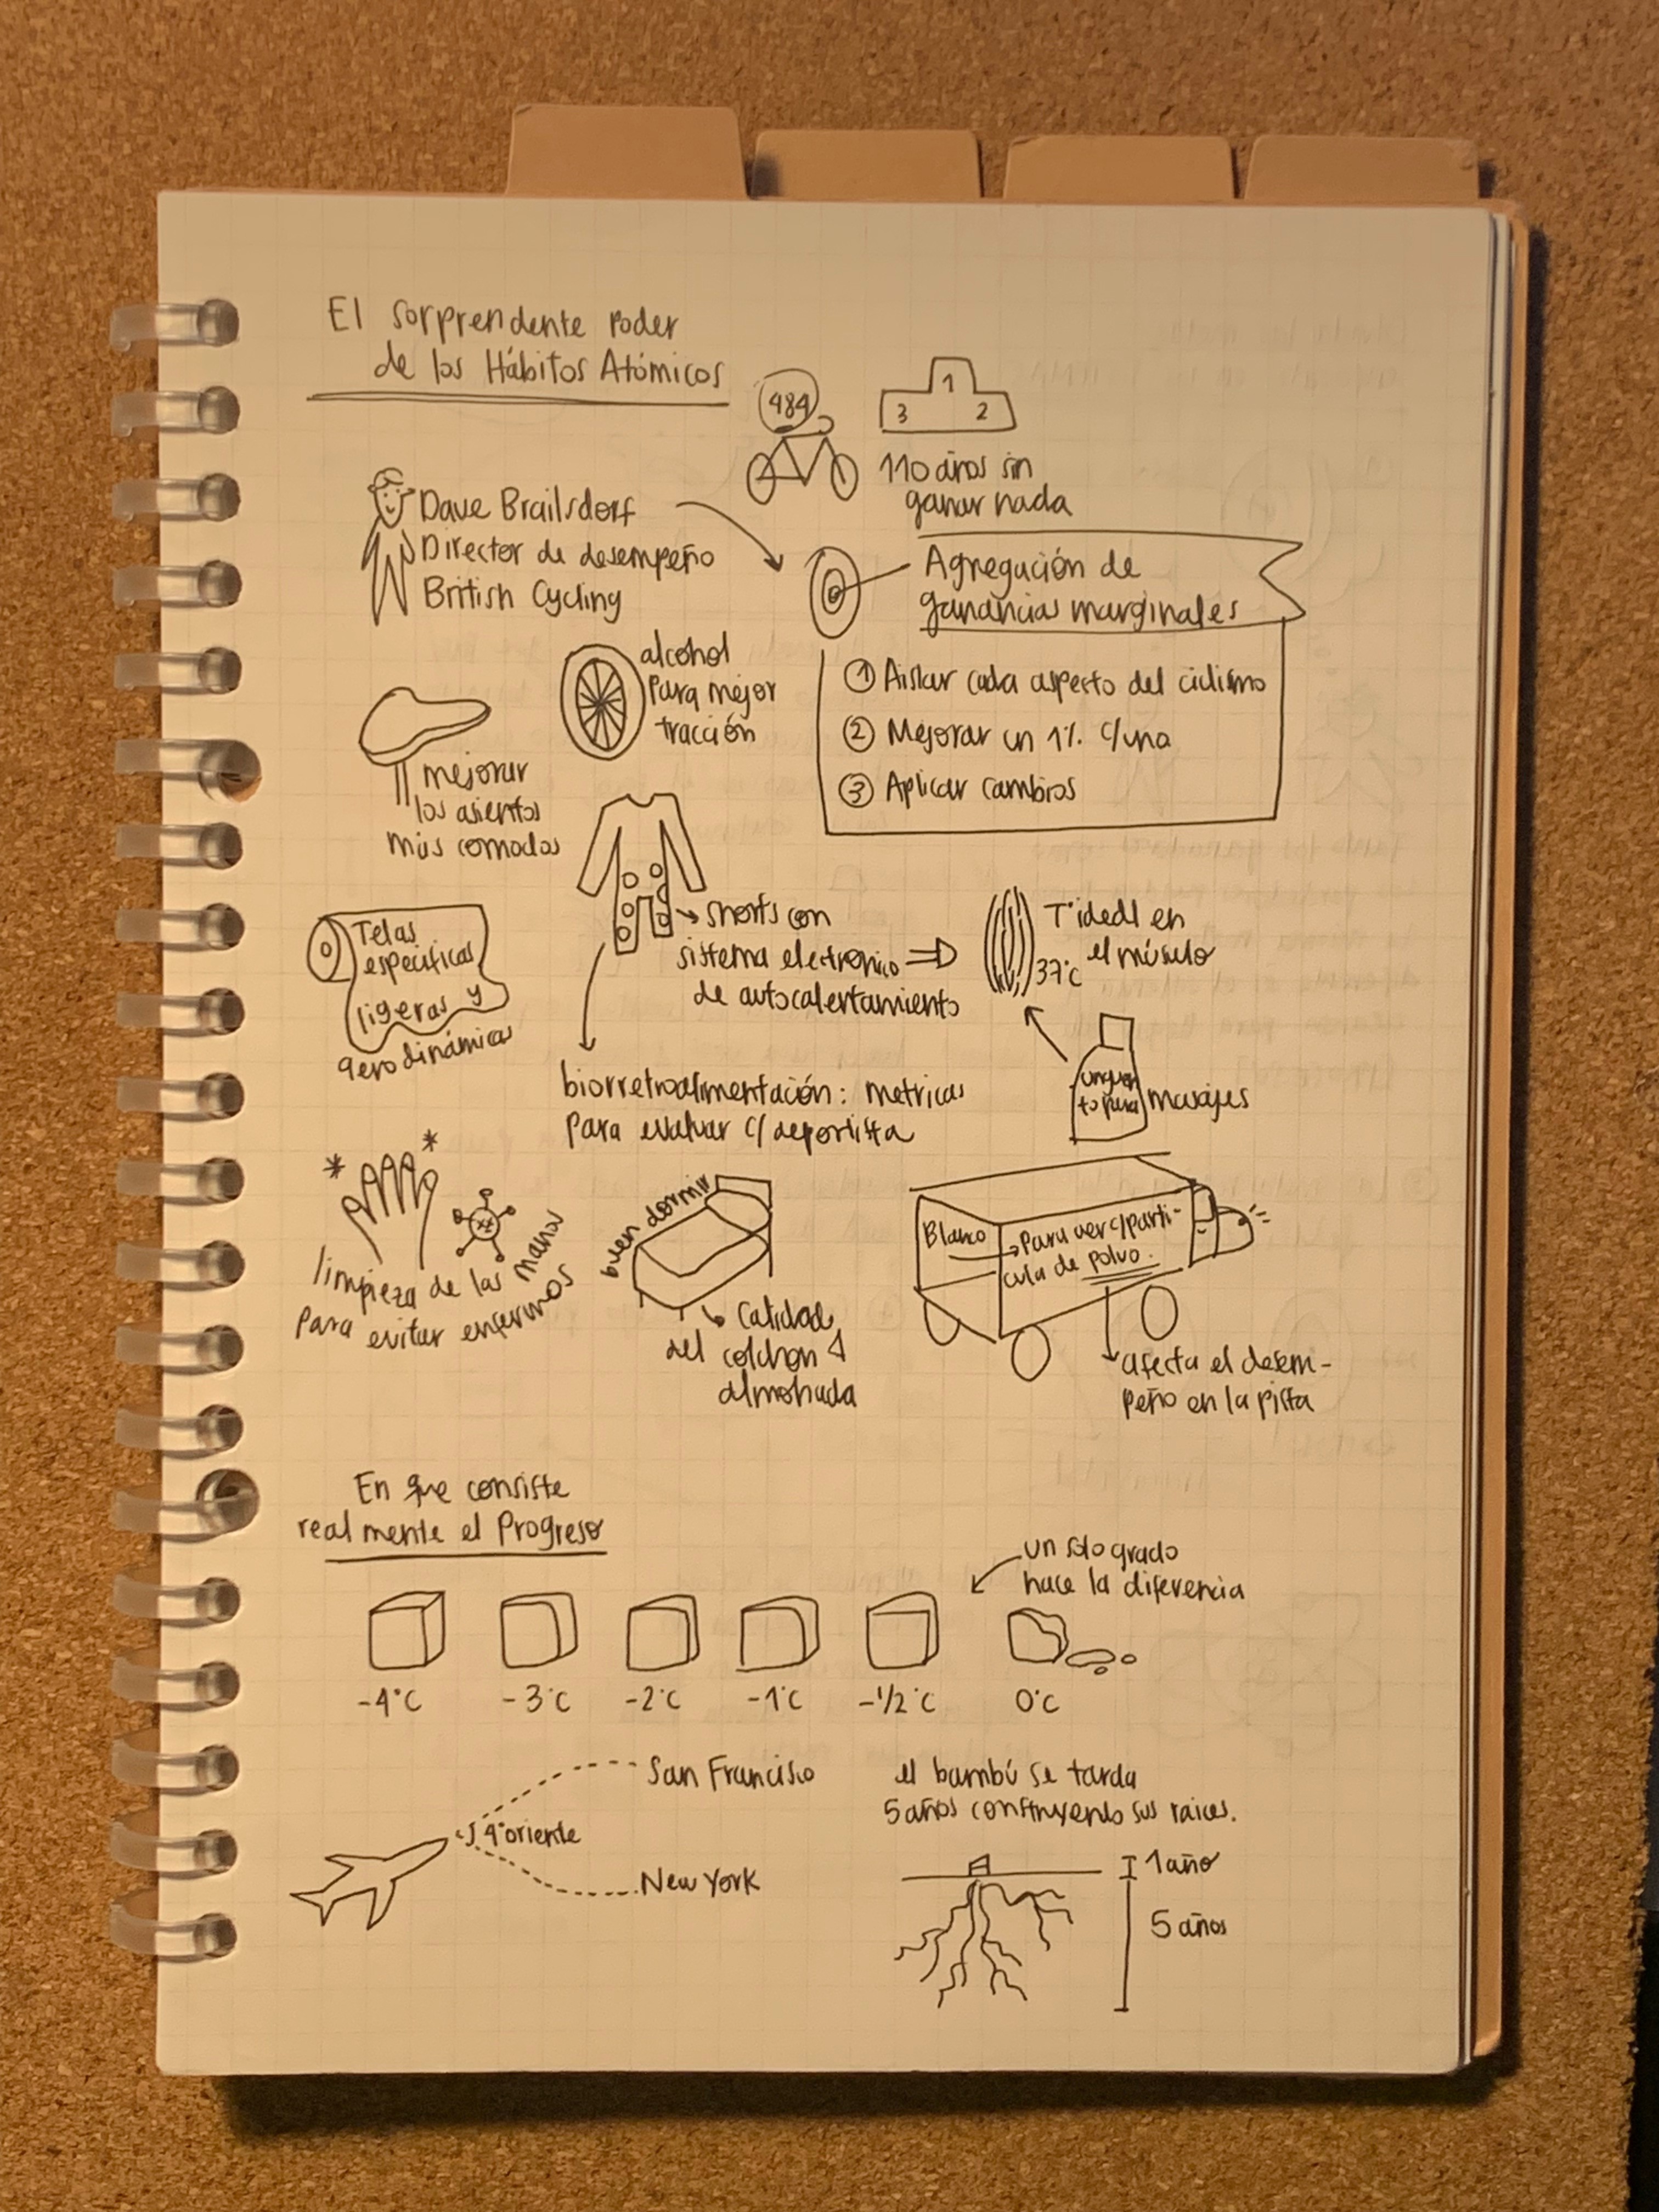 El sorprendente poder
de los Hábitos Atómicos
484
1
3 2
110 años sin
ganar nada
Dave Brailsdorf
Director de desempeño
British Cycling
Agregación de
ganancias marginales
1 Aislar cada aspecto del ciclismo
2 Mejorar un 1% c/una
3 Aplicar cambios
alcohol
para mejor
tracción
mejorar
los asientos
más comodos
Telas
específicas
ligeras y
aerodinámicas
shorts con
sistema electronico
de autocalentamiento
T° ideal en
el músculo
37°c
biorretroalimentación: metricas
para evaluar c/deportista
unguen
to para masajes
limpieza de las manos
para evitar enfermos
buen dormir
Calidad
del colchon y
almohada
Blanco
Para ver c/parti-
cula de polvo.
afecta el desem-
peño en la pista
En que consiste
realmente el Progreso
un solo grado
hace la diferencia
-4°C -3°C -2°C -1°C -1/2°C 0°C
San Francisco
4° oriente
New York
el bambú se tarda
5 años construyendo sus raices.
1 año
5 años